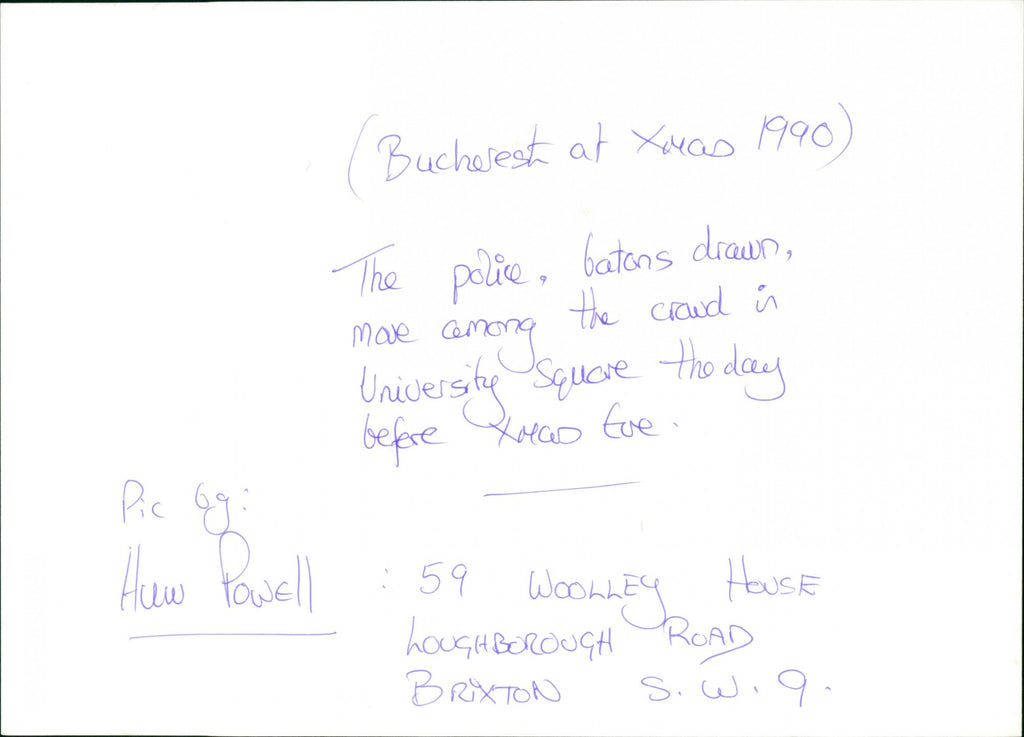 (Bucharest at Xmas 1990)
The police, batons drawn,
move among the crowd in
University Square the day
before Xmas Eve.
Pic by:
Huw Powell : 59 WOOLLEY HOUSE
LOUGHBOROUGH ROAD
BRIXTON S.W.9.